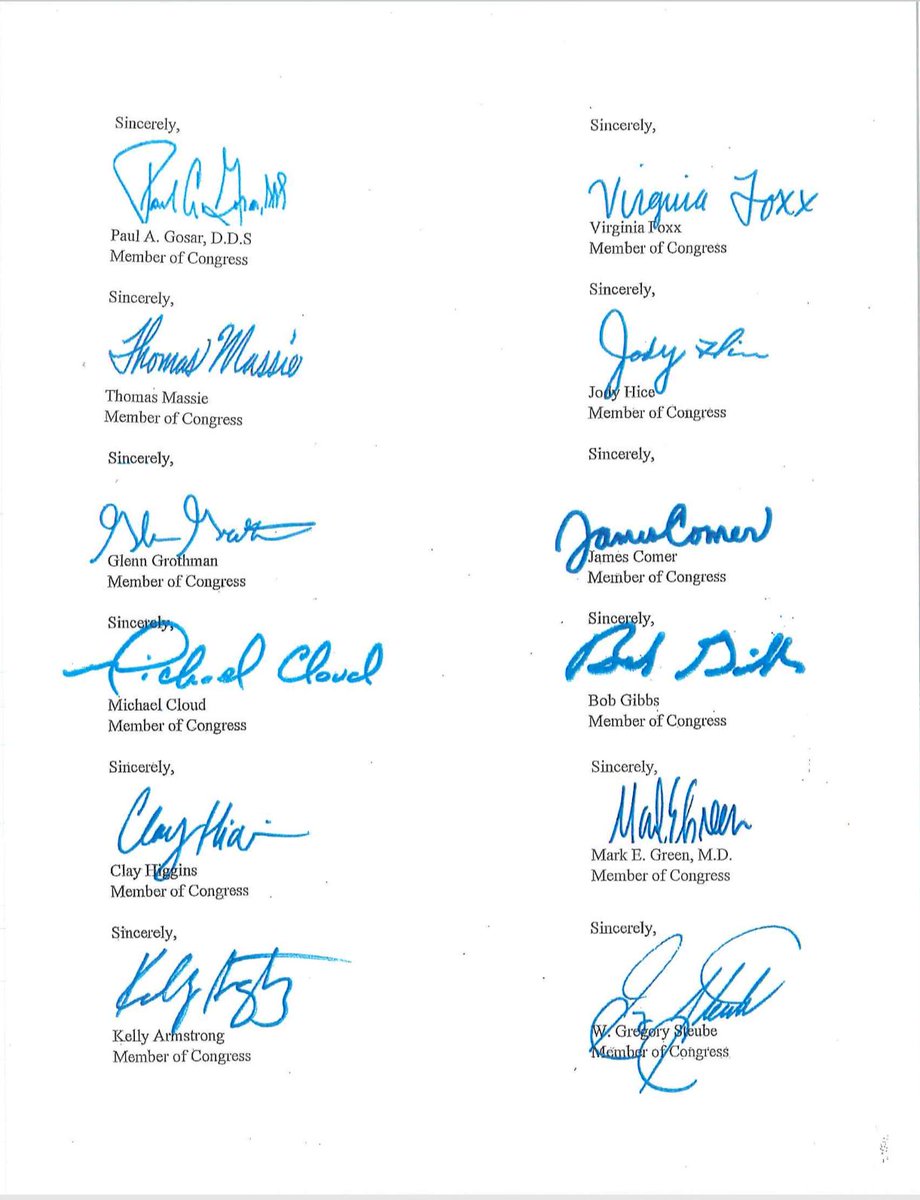 Sincerely,
Paul A. Gosar, DDS
Paul A. Gosar, D.D.S
Member of Congress
Sincerely,
Virginia Foxx
Virginia Foxx
Member of Congress
Sincerely,
Thomas Massie
Thomas Massie
Member of Congress
Sincerely,
Jody Hice
Jody Hice
Member of Congress
Sincerely,
Glenn Grothman
Glenn Grothman
Member of Congress
Sincerely,
James Comer
James Comer
Member of Congress
Sincerely,
Michael Cloud
Michael Cloud
Member of Congress
Sincerely,
Bob Gibbs
Bob Gibbs
Member of Congress
Sincerely,
Clay Higgins
Clay Higgins
Member of Congress
Sincerely,
Mark E Green
Mark E. Green, M.D.
Member of Congress
Sincerely,
Kelly Armstrong
Kelly Armstrong
Member of Congress
Sincerely,
Steube
W. Gregory Steube
Member of Congress